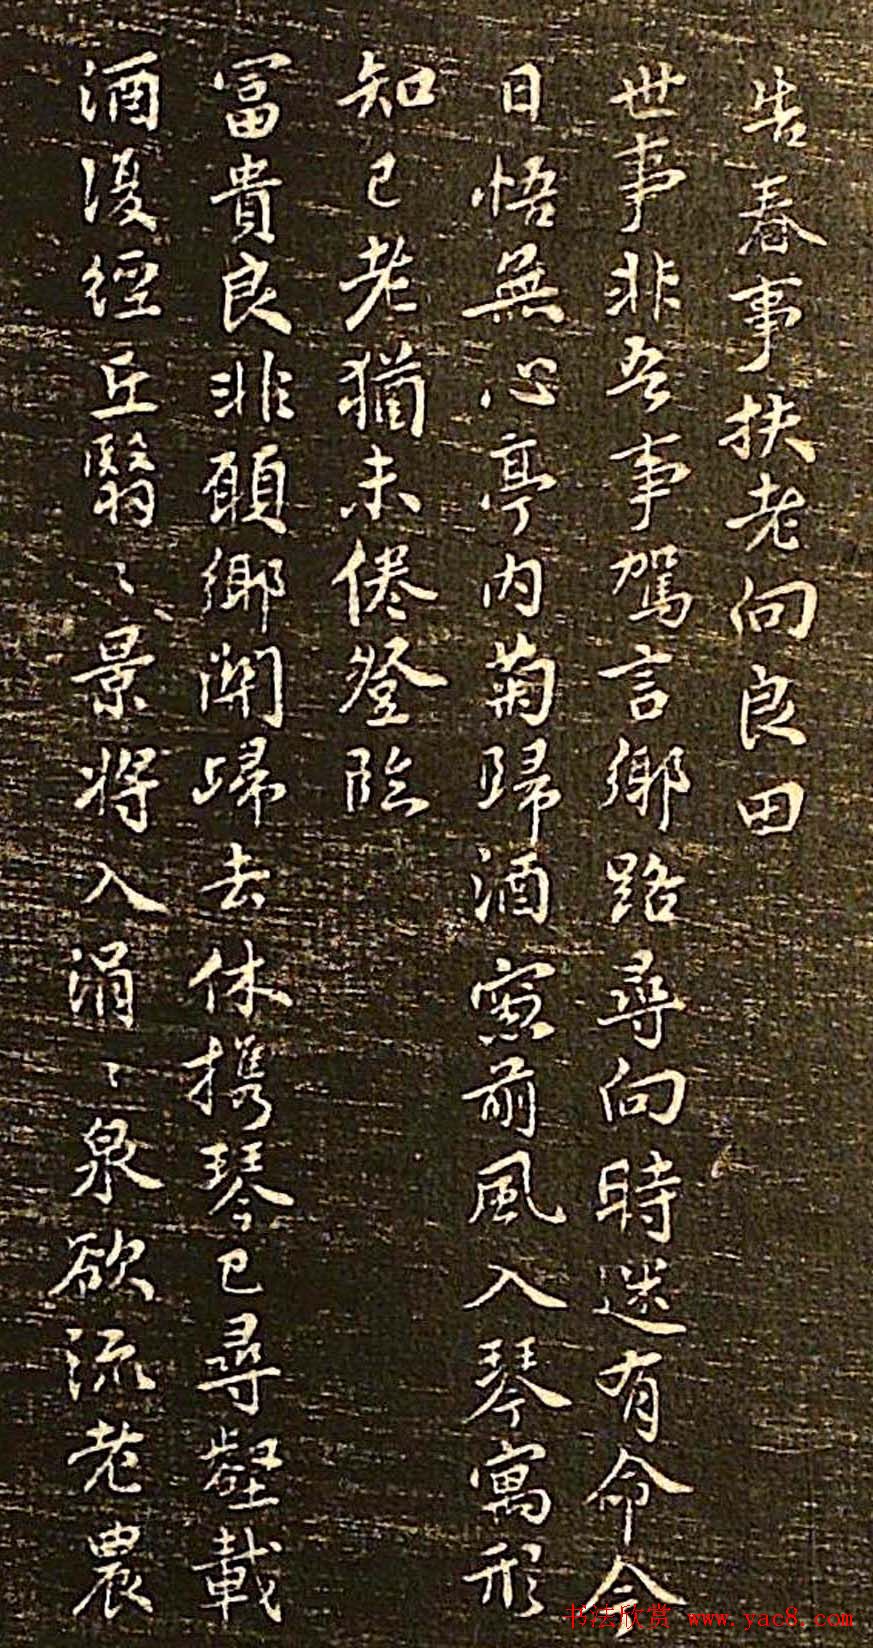 告春事扶老向良田
世事非吾事駕言鄉路尋向時迷有命今
日悟無心亭內菊歸酒窓前風入琴寓形
知已老猶未倦登臨
富貴良非願鄉關歸去休携琴已尋壑載
酒復經丘翳〻景將入涓〻泉欲流老農
书法欣赏 www.yac8.com